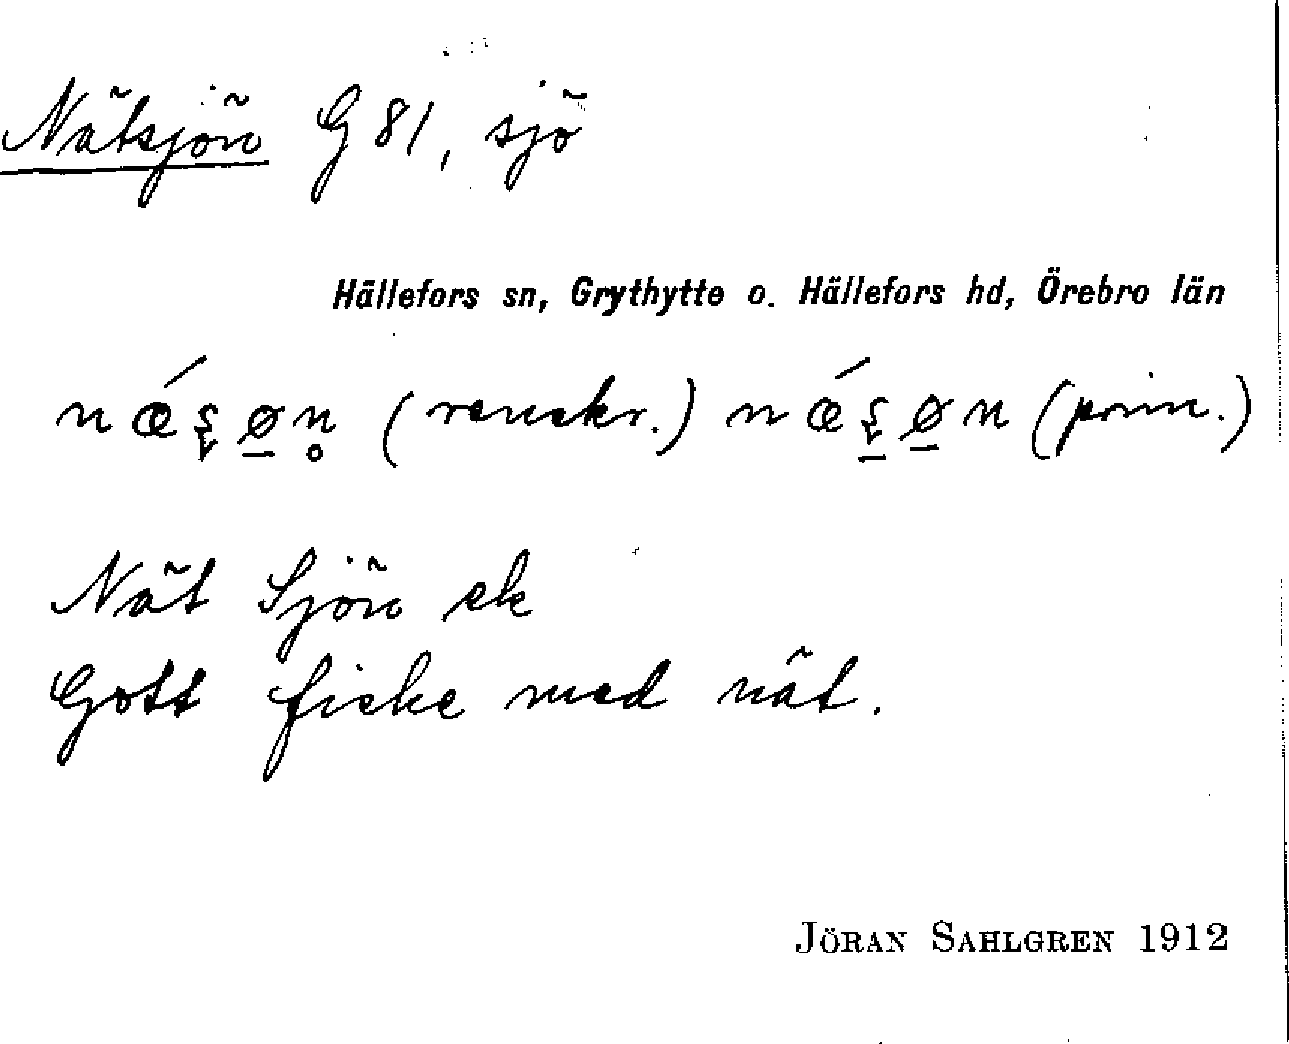 Nätsjön G 81, sjö
Hällefors sn, Grythytte o. Hällefors hd, Örebro län
nǽʂø̱n̥ (renskr.) nǽʂ̱ø̱n (prim.)
Nät Sjön ek
Gott fiske med nät.
JÖRAN SAHLGREN 1912